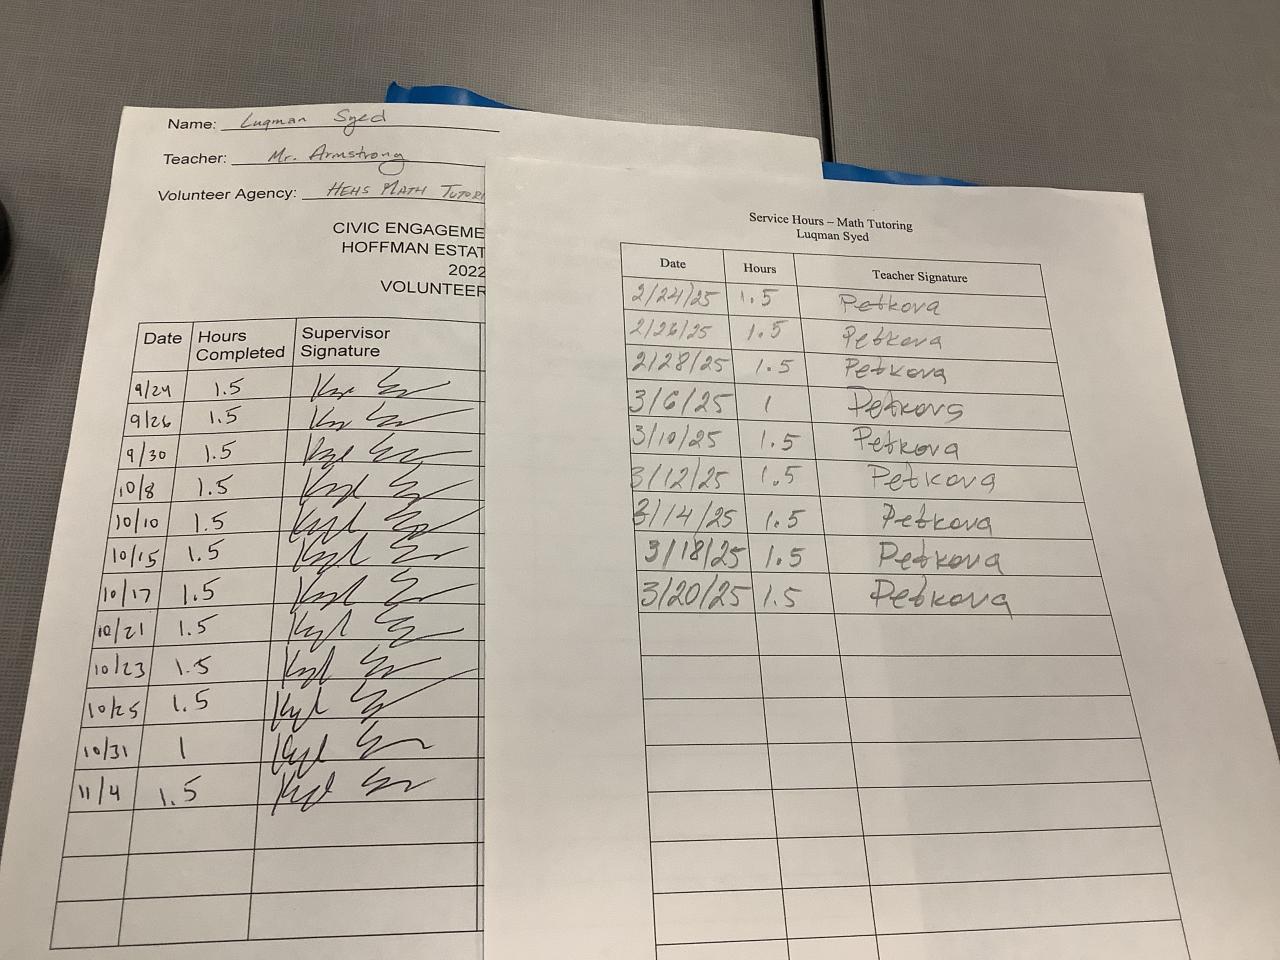 Name: Luqman Syed
Teacher: Mr. Armstrong
Volunteer Agency: HEHS MATH TUTORI
CIVIC ENGAGEME
HOFFMAN ESTAT
2022
VOLUNTEER
Date Hours Completed Supervisor Signature
9/24 1.5
9/26 1.5
9/30 1.5
10/8 1.5
10/10 1.5
10/15 1.5
10/17 1.5
10/21 1.5
10/23 1.5
10/25 1.5
10/31 1
11/4 1.5
Service Hours – Math Tutoring
Luqman Syed
Date Hours Teacher Signature
2/24/25 1.5 Petkova
2/26/25 1.5 Petkova
2/28/25 1.5 Petkova
3/6/25 1 Petkova
3/10/25 1.5 Petkova
3/12/25 1.5 Petkova
3/14/25 1.5 Petkova
3/18/25 1.5 Petkova
3/20/25 1.5 Petkova